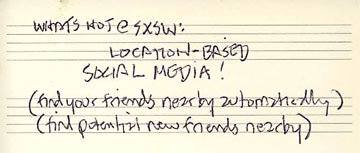 WHAT'S HOT @ SXSW:
LOCATION-BASED
SOCIAL MEDIA!
(find your friends nearby automatically)
(find potential new friends nearby)